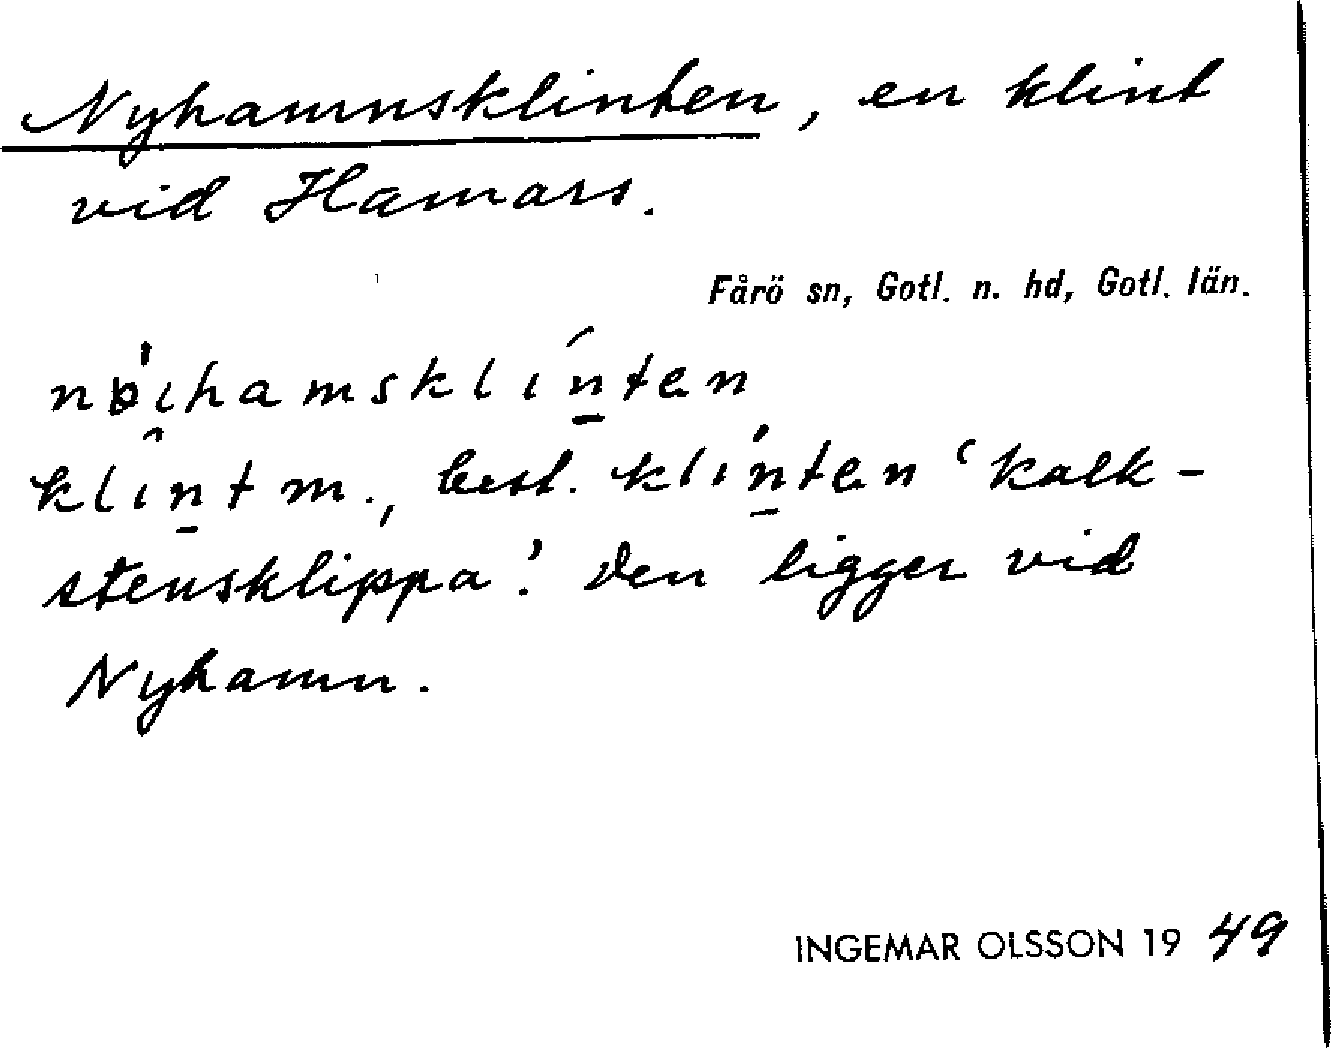 Nyhamnsklinten, en klint
vid Hamars.
Fårö sn, Gotl. n. hd, Gotl. län.
nɵ́ıhamsklı́n̲ten
klı̂n̲t m., best. klı́n̲ten ‘kalk-
stensklippa’. Den ligger vid
Nyhamn.
INGEMAR OLSSON 1949